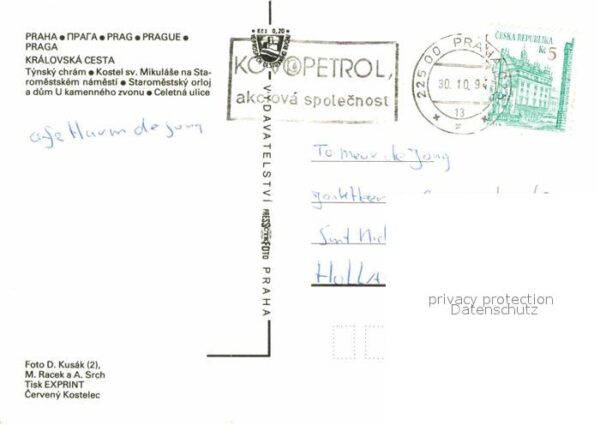 PRAHA ● ПРАГА ● PRAG ● PRAGUE ●
PRAGA
KRÁLOVSKÁ CESTA
Týnský chrám ● Kostel sv. Mikuláše na Sta-
roměstském náměstí ● Staroměstský orloj
a dům U kamenného zvonu ● Celetná ulice
Kčs 0,20
PETROL,
akciová společnost
225 00 PRA
30.10.94
13
ČESKÁ REPUBLIKA
Kč 5
VYDAVATELSTVÍ PRESSFOTO PRAHA
de Jong
To
de Jong
Sint
HOLLA
privacy protection
Datenschutz
Foto D. Kusák (2),
M. Racek a A. Srch
Tisk EXPRINT
Červený Kostelec